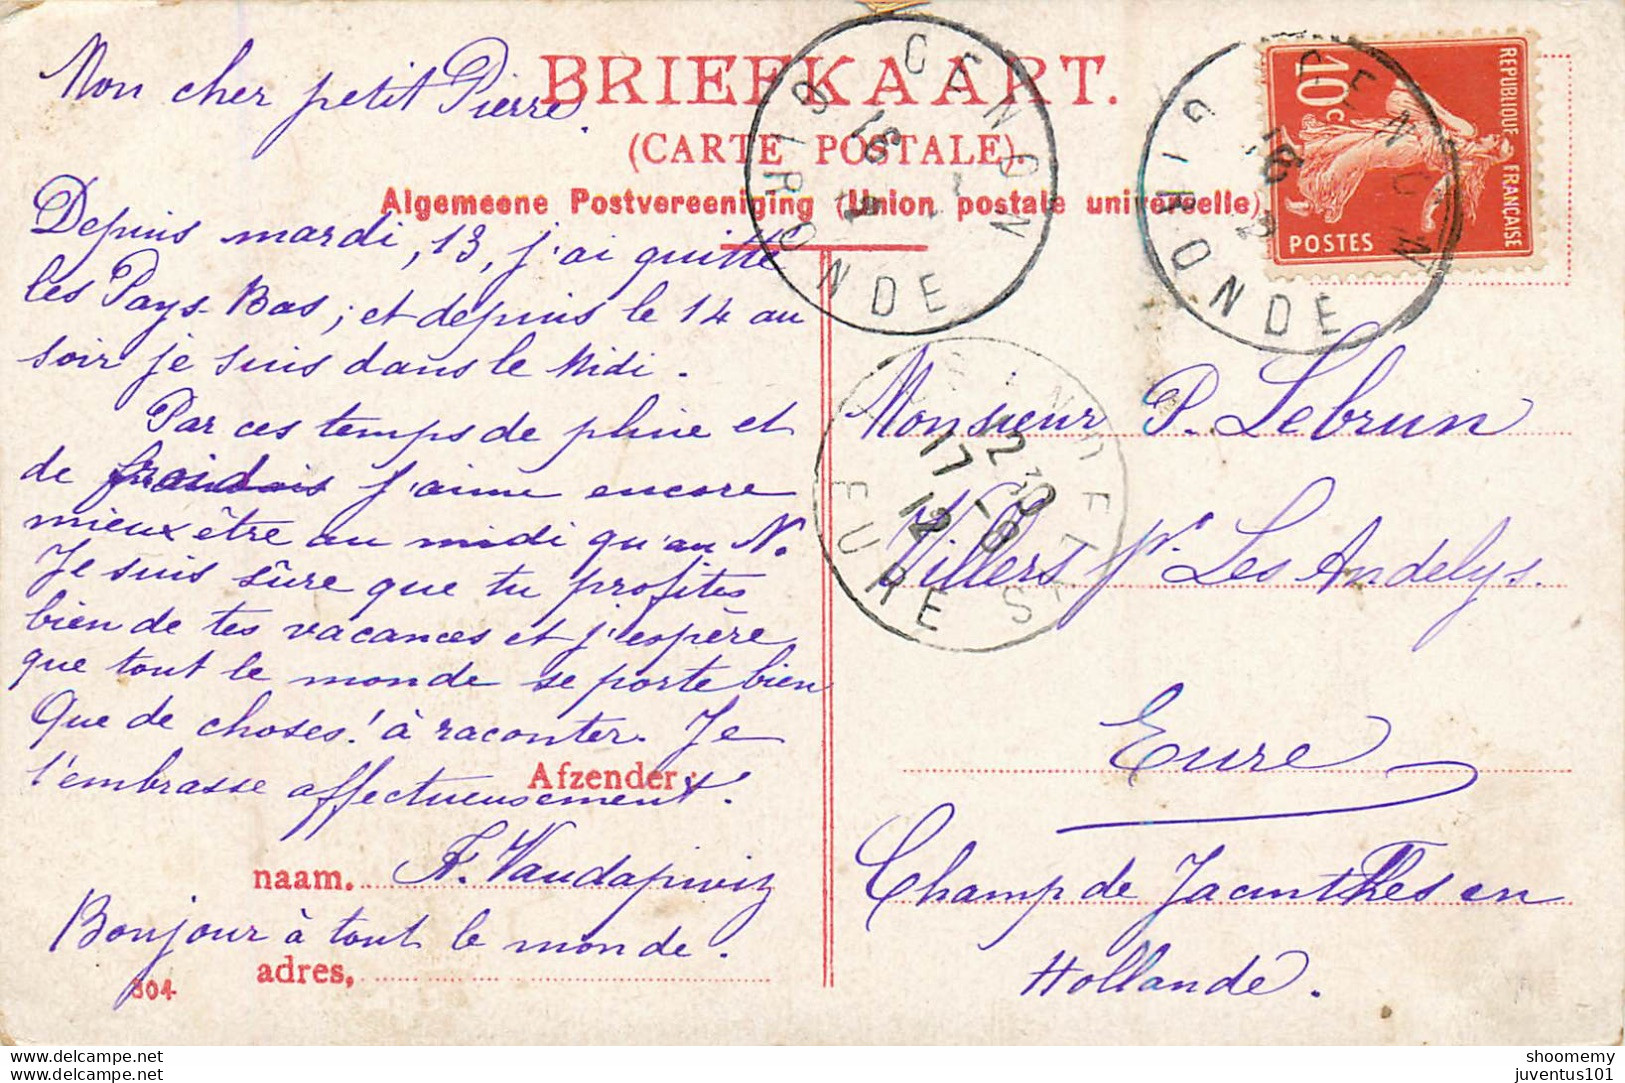 BRIEFKAART.
(CARTE POSTALE).
Algemeene Postvereeniging (Union postale universelle)
Mon cher petit Pierre.
Depuis mardi, 13, j'ai quitté
les Pays-Bas; et depuis le 14 au
soir je suis dans le Midi.
Par ces temps de pluie et
de j'aime encore
mieux être au midi qu'au N.
Je suis sûre que tu profites
bien de tes vacances et j'espère
que tout le monde se porte bien
Que de choses! à raconter. Je
t'embrasse affectueusement.
Afzender:
naam.
Bonjour à tout le monde.
adres,
304
CENON
GIRONDE
16
CENON
GIRONDE
16
REPUBLIQUE FRANÇAISE
10c
POSTES
EURE
12 30
17 -8
12
Monsieur P. Lebrun
Villers pr. Les Andelys.
Eure
Champ de Jacinthes en
Hollande.
www.delcampe.net
www.delcampe.net
shoomemy
juventus101